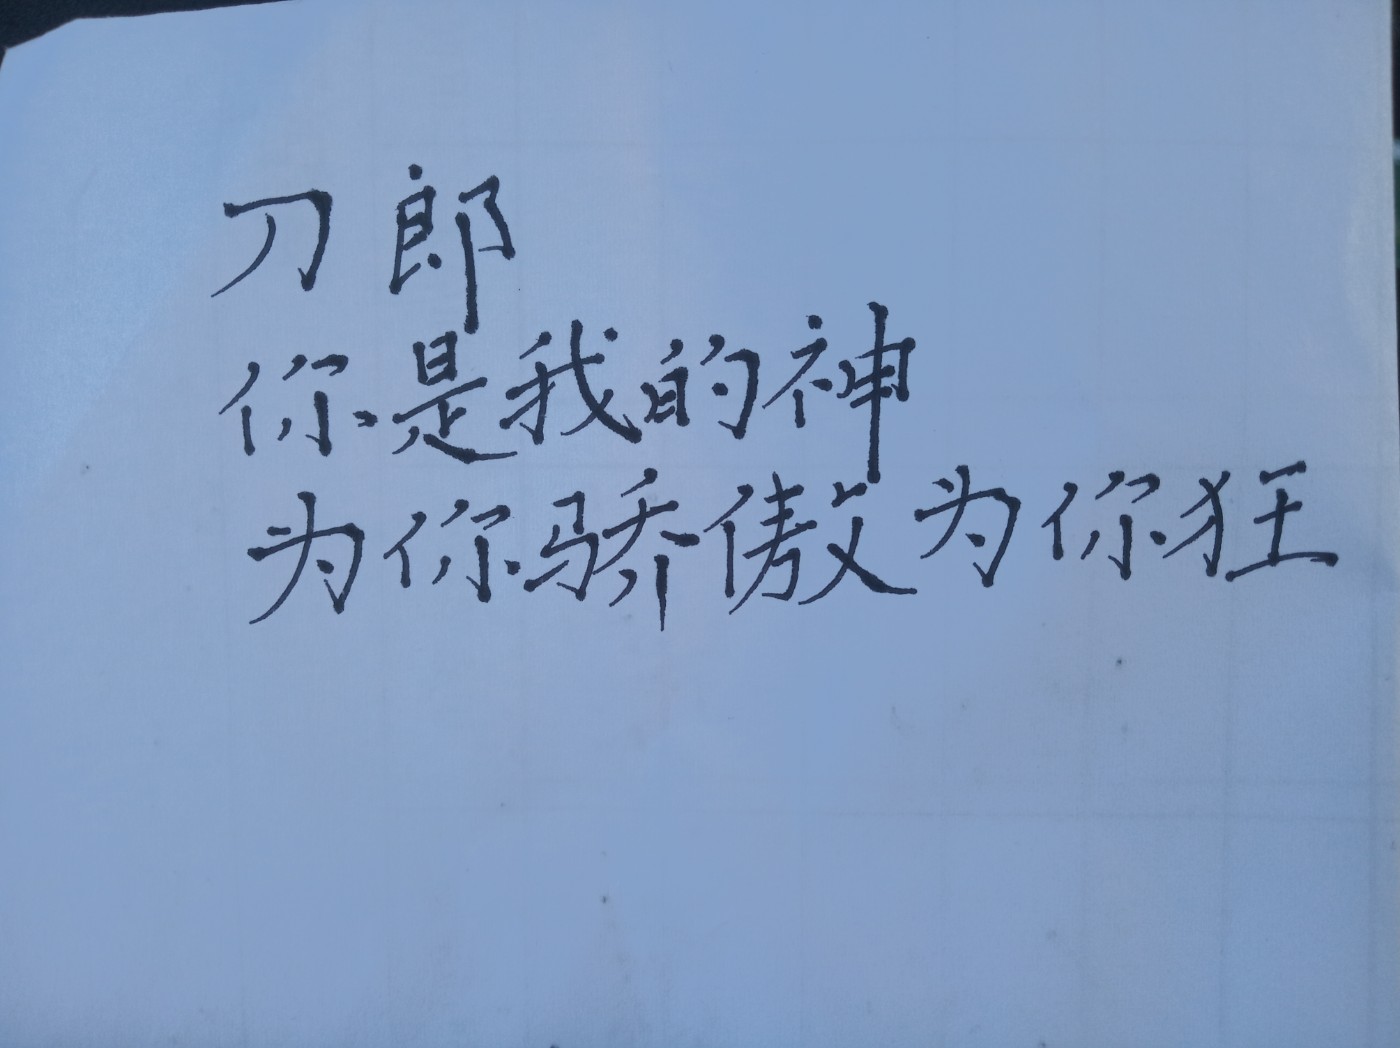 刀郎
你是我的神
为你骄傲为你狂